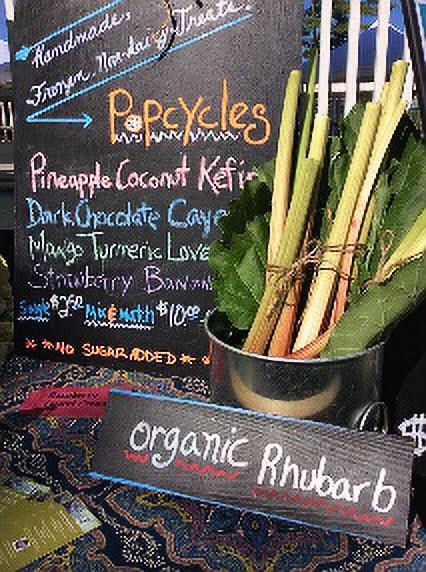 Handmade,
Frozen, Non-dairy Treats.
Popcycles
Pineapple Coconut Kefir
Dark Chocolate Caye
Mango Turmeric Love
Strawberry Banan
Single $2.50 Mix & Match $10.00
* *NO SUGAR ADDED * *
organic Rhubarb
$